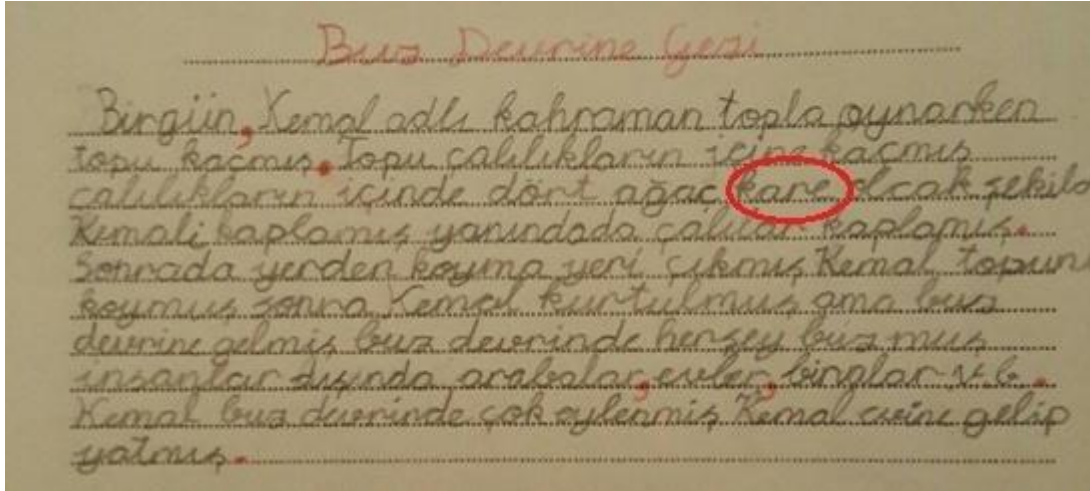 Buz Devrine Gezi
Birgün, Kemal adlı kahraman topla oynarken
topu kaçmış. Topu çalılıkların içine kaçmış
çalılıkların içinde dört ağaç kare olcak şekilde
Kemali kaplamış yanındada çalılar kaplamış.
Sonrada yerden koyma yeri çıkmış Kemal topunu
koymuş sonra Kemal kurtulmuş ama buz
devrine gelmiş buz devrinde herşey buz muş
insanlar dışında arabalar, evler, binalar v.b.
Kemal buz devrinde çok eylenmiş Kemal evine gelip
yatmış.